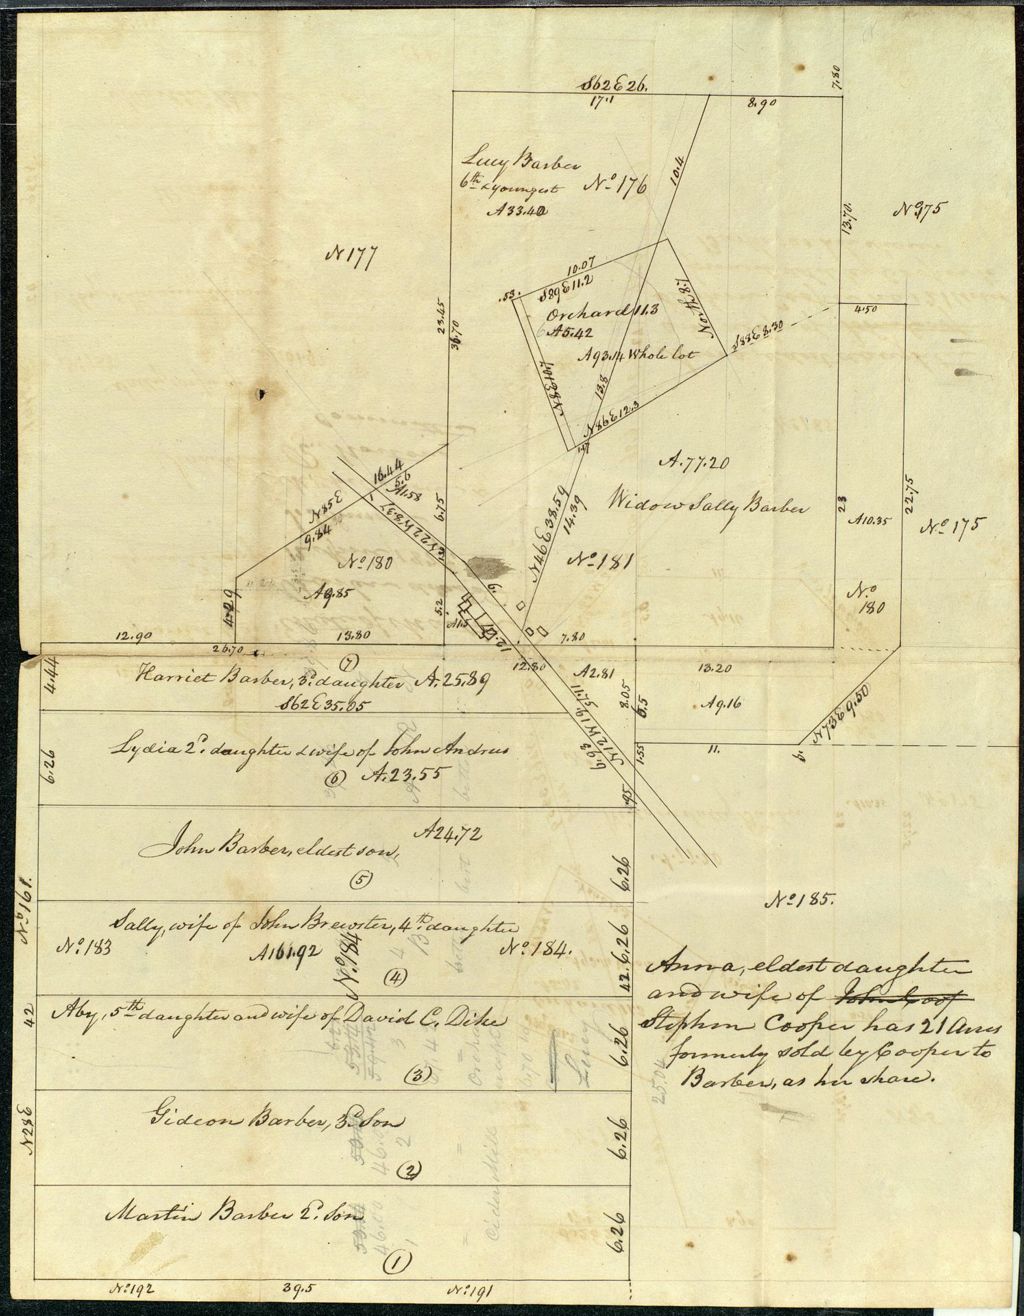 S62E26.
17.1
8.90
7.80
Lucy Barber
6th & youngest
No 176
A33.40
10.4
13.70.
No 175
N 177
10.07
S89E11.2
.53.
Orchard 11.3
A5.42
A93.14 Whole lot
S88E8.30
4.50
23.45
36.70
13.8
N86E12.3
.47
A.77.20
Widow Sally Barber
23
22.75
A10.35
No 175
No 180
16.44
5.6
A1.58
N85E
9.84
6.75
N46E38.59
14.39
No 180
No 181
A9.85
4.29
5.2
12.90
26.70
13.80
7.80
12.80
4.44
7
Harriet Barber, 3d. daughter A.25.89
S62E35.05
A2.81
8.05
6.5
13.20
A9.16
N73E9.50
6.93
1.55
11.
.9
6.26
Lydia 2d. daughter & wife of John Andrus
6 A.23.55
.95
John Barber, eldest son,
A24.72
5
6.26
No 161.
Sally, wife of John Brewster, 4th. daughter
No 183
A161.92
No 184
No 184.
4
42.6.26
No 185.
42
Aby, 5th daughter and wife of David C. Dike
3
6.26
Anna, eldest daughter
and wife of John
Stephen Cooper has 21 Acres
formerly sold by Cooper to
Barber, as her share.
N28E
Gideon Barber, 3d. Son
2
6.26
Martin Barber 2d. Son
1
6.26
No 192
39.5
No 191